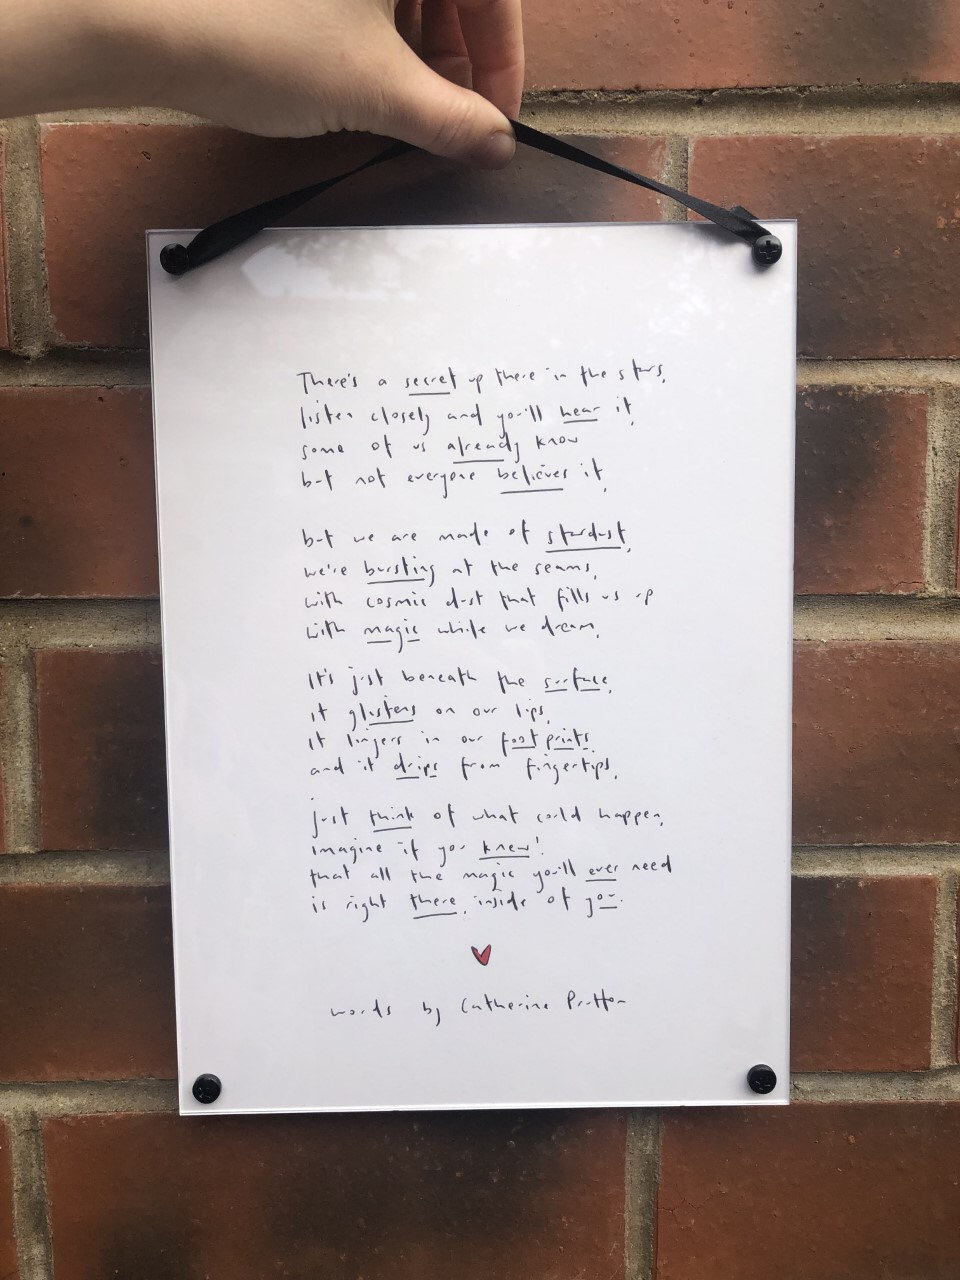 There's a secret up there in the stars,
listen closely and you'll hear it,
some of us already know
but not everyone believes it,
but we are made of stardust,
we're bursting at the seams,
with cosmic dust that fills us up
with magic while we dream,
It's just beneath the surface,
it glistens on our lips,
it lingers in our footprints,
and it drips from fingertips,
just think of what could happen,
imagine if you knew!
that all the magic you'll ever need
is right there, inside of you.
words by Catherine Prutton